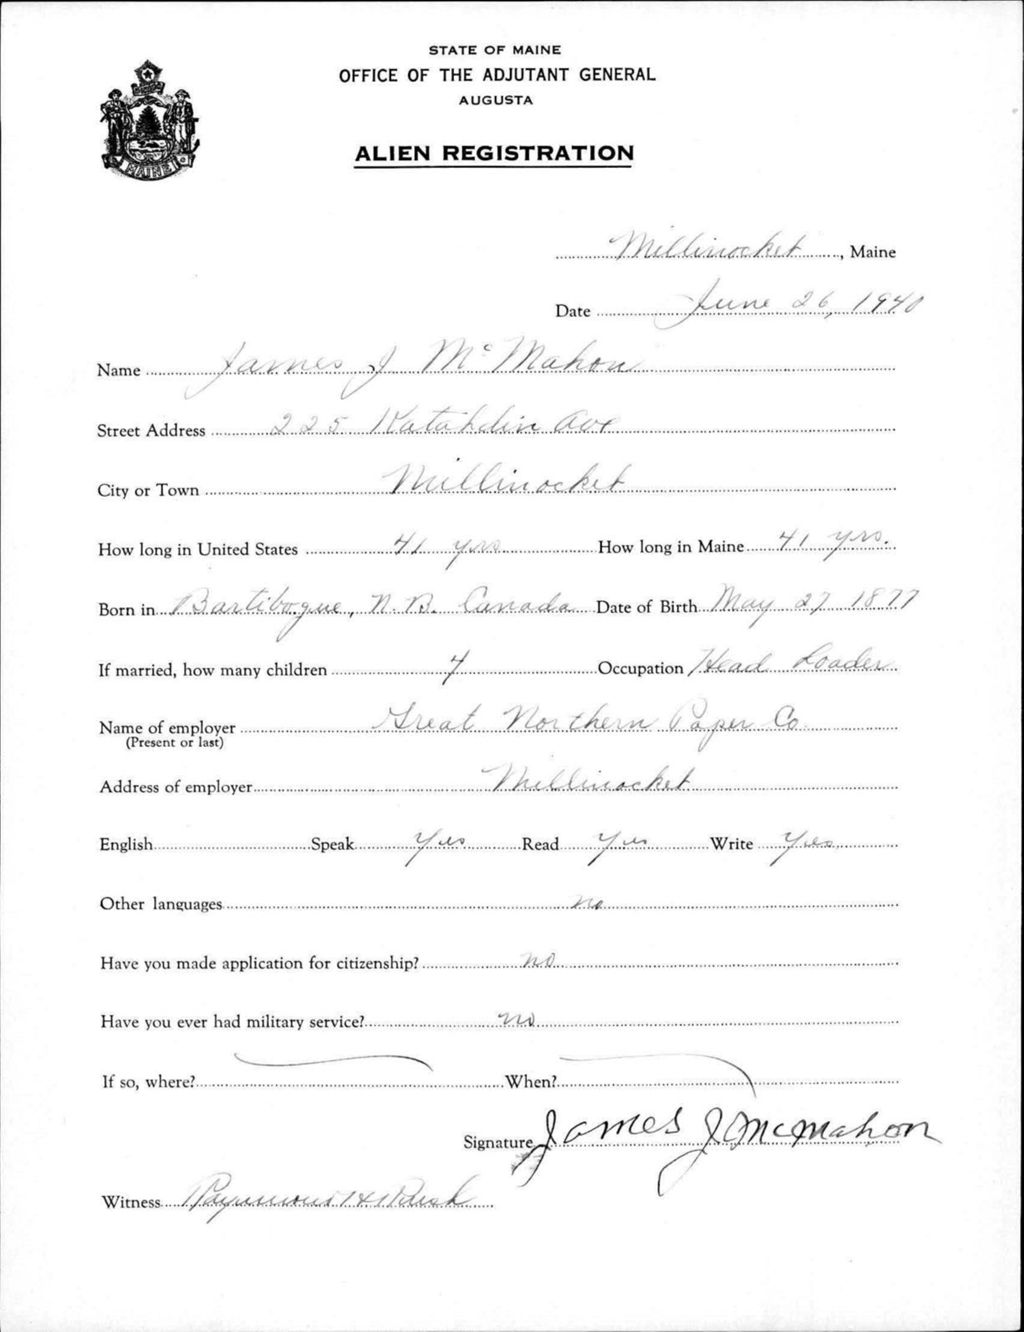 STATE OF MAINE
OFFICE OF THE ADJUTANT GENERAL
AUGUSTA
ALIEN REGISTRATION
MAINE
Millinocket, Maine
Date June 26, 1940
Name James J McMahon
Street Address 225 Katahdin Ave
City or Town Millinocket
How long in United States 41 yrs How long in Maine 41 yrs.
Born in Bartibogue, N.B. Canada Date of Birth May 27 1877
If married, how many children 4 Occupation Head Loader
Name of employer Great Northern Paper Co.
(Present or last)
Address of employer Millinocket
English Speak Yes Read Yes Write Yes
Other languages no
Have you made application for citizenship? no
Have you ever had military service? no
If so, where? When?
Signature James J McMahon
Witness Raymond H Rush